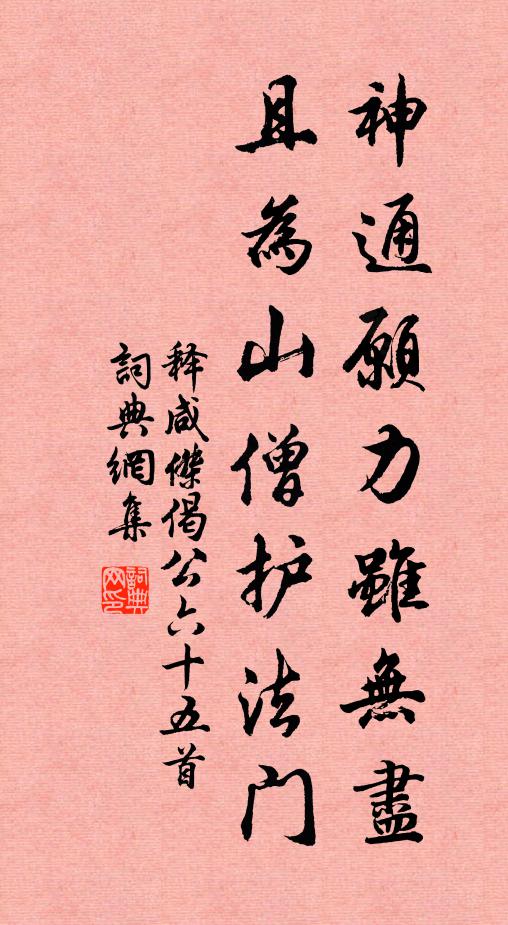 神通願力雖無盡
且為山僧护法门
释咸傑偈公六十五首
詞典網集
詞典网印